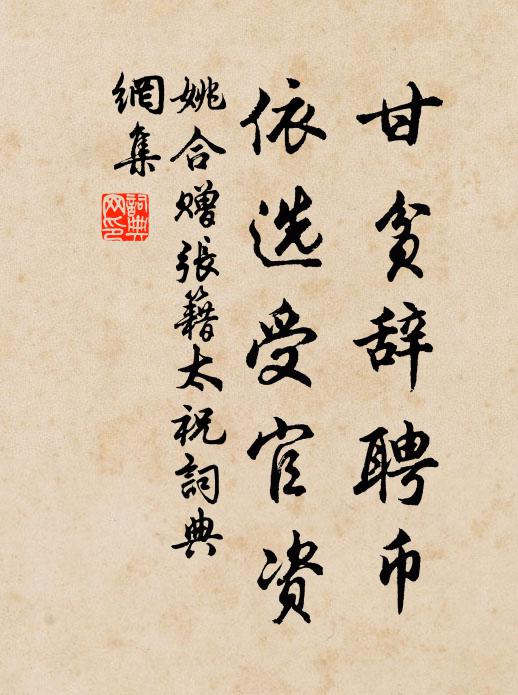 甘贫辞聘币
依选受官资
姚合赠張籍太祝詞典
網集
詞典网印